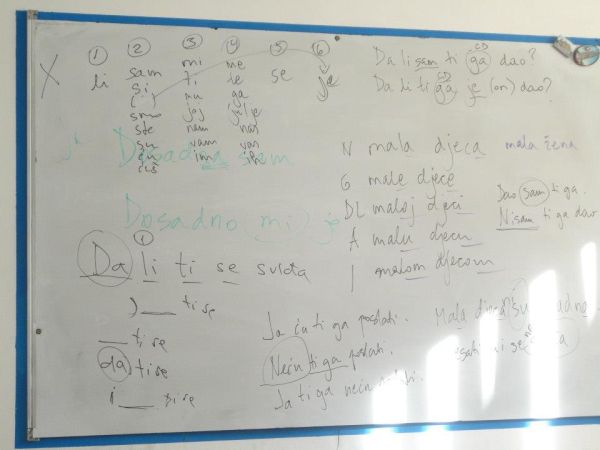 X
1 2 3 4 5 6
li sam mi me se je
si ti te
( ) mu ga
smo joj ju/je
ste nam nas
su vam vas
im ih
Da li sam ti ga dao?
Da li ti ga je (on) dao?
N mala djeca mala žena
G male djece
DL maloj djeci
A malu djecu
I malom djecom
Dao sam ti ga.
Nisam ti ga dao
Dosadna sam
Dosadno mi je
1
Da li ti se sviđa
) ti se
ti se
da ti se
i ti se
Ja ću ti ga poslati.
Neću ti ga poslati.
Ja ti ga neću
Mala djeca su